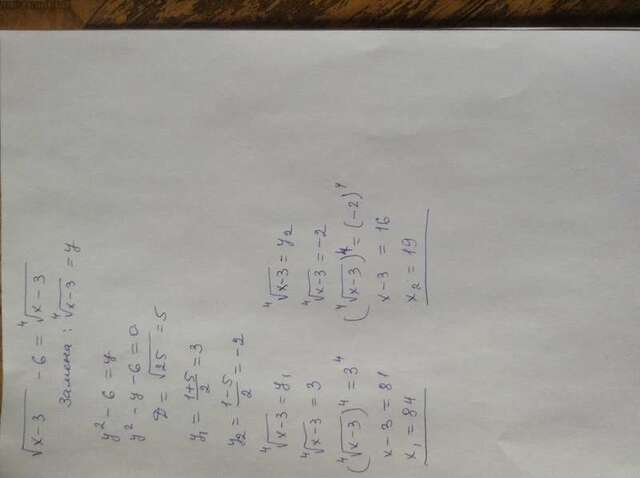 √x-3 - 6 = ⁴√x-3
Замена : ⁴√x-3 = y
y² - 6 = y
y² - y - 6 = 0
D = √25 = 5
y₁ = 1+5/2 = 3
y₂ = 1-5/2 = -2
⁴√x-3 = y₁
⁴√x-3 = 3
(⁴√x-3)⁴ = 3⁴
x - 3 = 81
x₁ = 84
⁴√x-3 = y₂
⁴√x-3 = -2
(⁴√x-3)⁴ = (-2)⁴
x - 3 = 16
x₂ = 19